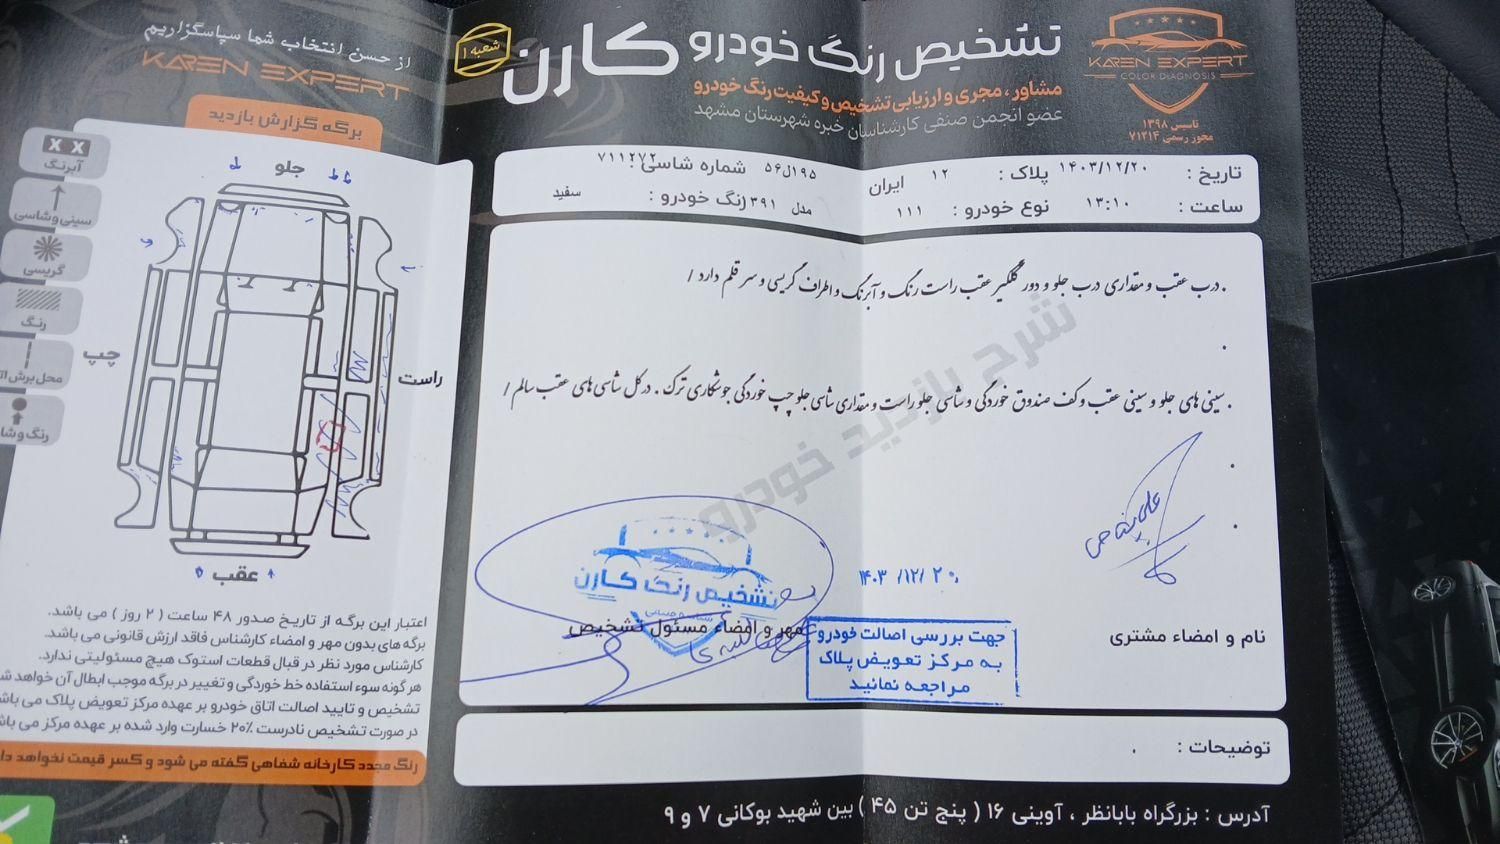 تشخیص رنگ خودرو کارن
شعبه ۱
مشاور ، مجری و ارزیابی تشخیص و کیفیت رنگ خودرو
عضو انجمن صنفی کارشناسان خبره شهرستان مشهد
KAREN EXPERT
COLOR DIAGNOSIS
تاسیس ۱۳۹۸
مجوز رسمی ۷۱۲۱۴
تاریخ : ۱۴۰۳/۱۲/۲۰ پلاک : ۱۲ ایران ۵۶ل۱۹۵ شماره شاسی : ۷۱۱۲۷۲
ساعت : ۱۳:۱۰ نوع خودرو : ۱۱۱ مدل ۳۹۱ رنگ خودرو : سفید
. درب عقب و مقداری درب جلو و دور گلگیر عقب راست رنگ و آبرنگ و اطراف گریسی و سر قلم دارد /
. سینی های جلو و سینی عقب و کف صندوق خوردگی و شاسی جلو راست و مقداری شاسی جلو چپ خوردگی جوشکاری ترک . در کل شاسی های عقب سالم /
شرح بازدید خودرو
۱۴۰۳/۱۲/۲۰
تشخیص رنگ کارن
نام و امضاء مشتری
مهر و امضاء مسئول تشخیص
جهت بررسی اصالت خودرو
به مرکز تعویض پلاک
مراجعه نمائید
توضیحات : .
آدرس : بزرگراه بابانظر ، آوینی ۱۶ ( پنج تن ۴۵ ) بین شهید بوکانی ۷ و ۹
از حسن انتخاب شما سپاسگزاریم
KAREN EXPERT
برگه گزارش بازدید
جلو
راست
چپ
عقب
X X
آبرنگ
سینی و شاسی
گریسی
رنگ
محل برش
اعتبار این برگه از تاریخ صدور ۴۸ ساعت ( ۲ روز ) می باشد.
برگه های بدون مهر و امضاء کارشناس فاقد ارزش قانونی می باشد.
کارشناس مورد نظر در قبال قطعات استوک هیچ مسئولیتی ندارد.
هر گونه سوء استفاده خط خوردگی و تغییر در برگه موجب ابطال آن خواهد
تشخیص و تایید اصالت اتاق خودرو بر عهده مرکز تعویض پلاک می
در صورت تشخیص نادرست ۲۰٪ خسارت وارد شده بر عهده مرکز می
رنگ مجدد کارخانه شفاهی گفته می شود و کسر قیمت نخواهد